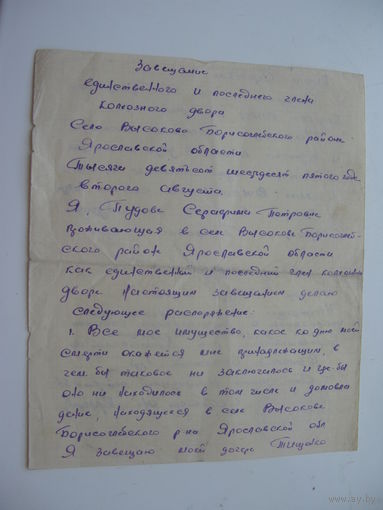 Завещание
единственного и последнего члена
колхозного двора
Село Высоково Борисоглебского района
Ярославской области
Тысяча девятьсот шестьдесят пятого года
второго августа.
Я, Пудова Серафима Петровна
проживающая в селе Высокове Борисоглеб-
ского района Ярославской области
как единственный и последний член колхозного
двора настоящим завещанием делаю
следующее распоряжение:
1. Все мое имущество, какое ко дню моей
смерти окажется мне принадлежащим, в
чем бы таковое ни заключалось и где бы
оно ни находилось в том числе и домовла
дение, находящееся в селе Высокове
Борисоглебского р-на Ярославской обл
Я завещаю моей дочери Тищенко